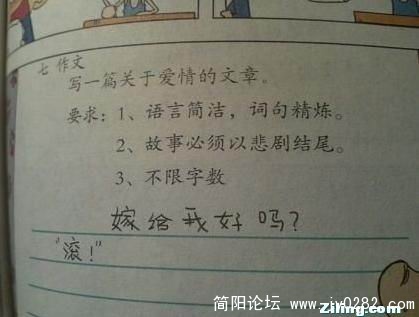 七 作文
写一篇关于爱情的文章。
要求：1、语言简洁，词句精炼。
2、故事必须以悲剧结尾。
3、不限字数
嫁给我好吗？
“滚！”
简阳论坛 www.jy0282.com
Ziling.com